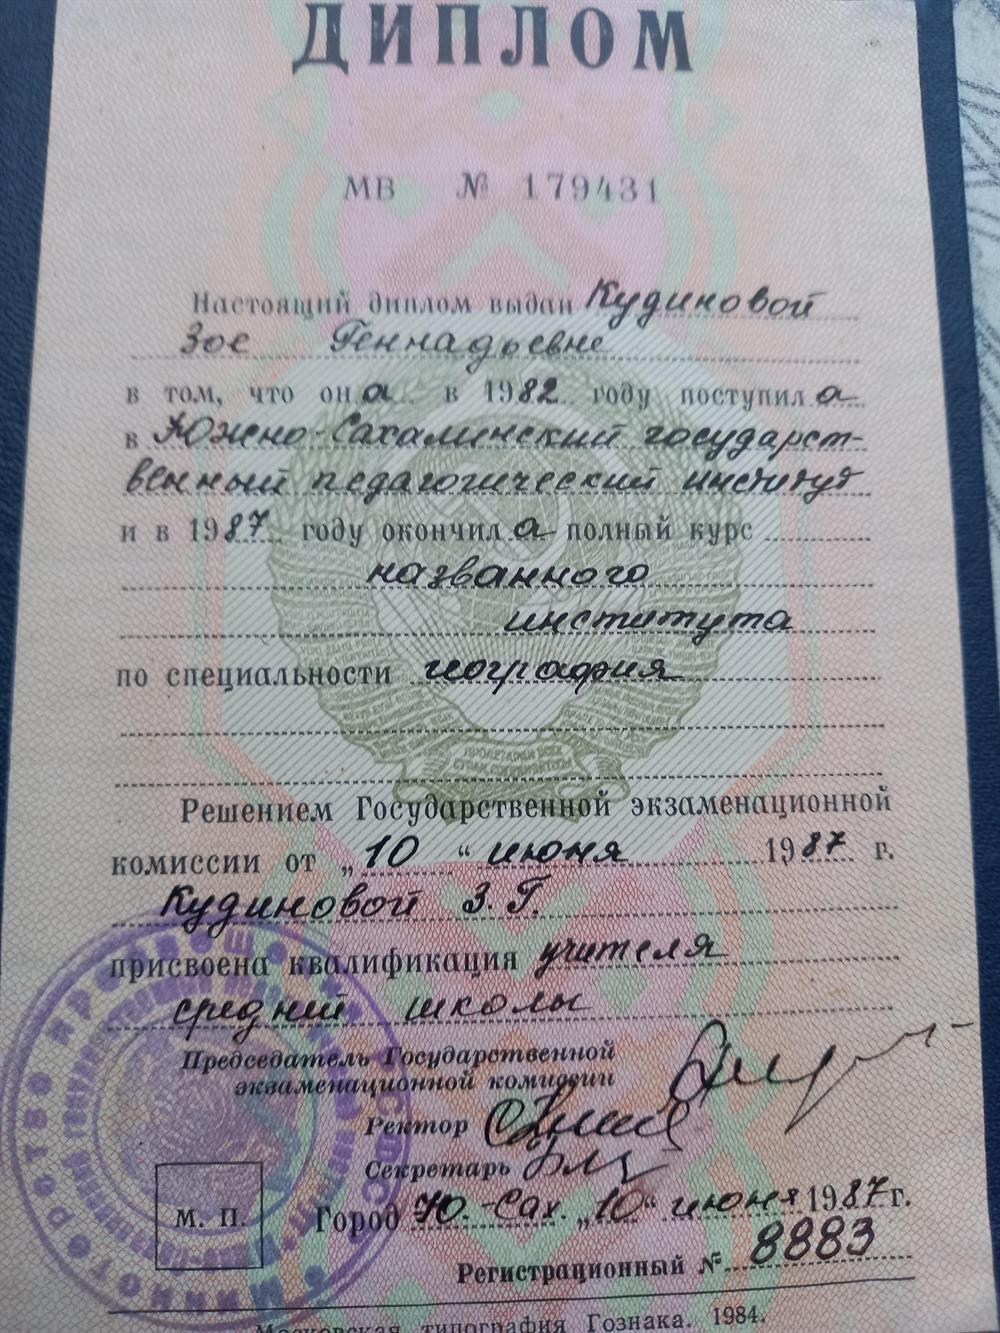 ДИПЛОМ
МВ № 179431
Настоящий диплом выдан Кудиновой
Зое Геннадьевне
в том, что она в 1982 году поступила
в Южно-Сахалинский государст-
венный педагогический институт
и в 1987 году окончила полный курс
названного
института
по специальности география
ПРОЛЕТАРИИ ВСЕХ
СТРАН, СОЕДИНЯЙТЕСЬ!
Решением Государственной экзаменационной
комиссии от „10“ июня 1987 г.
Кудиновой З. Г.
присвоена квалификация учителя
средней школы
Председатель Государственной
экзаменационной комиссии
Ректор
Секретарь
М. П.
Город Ю.-Сах. „10“ июня 1987 г.
Регистрационный № 8883
Московская типография Гознака. 1984.